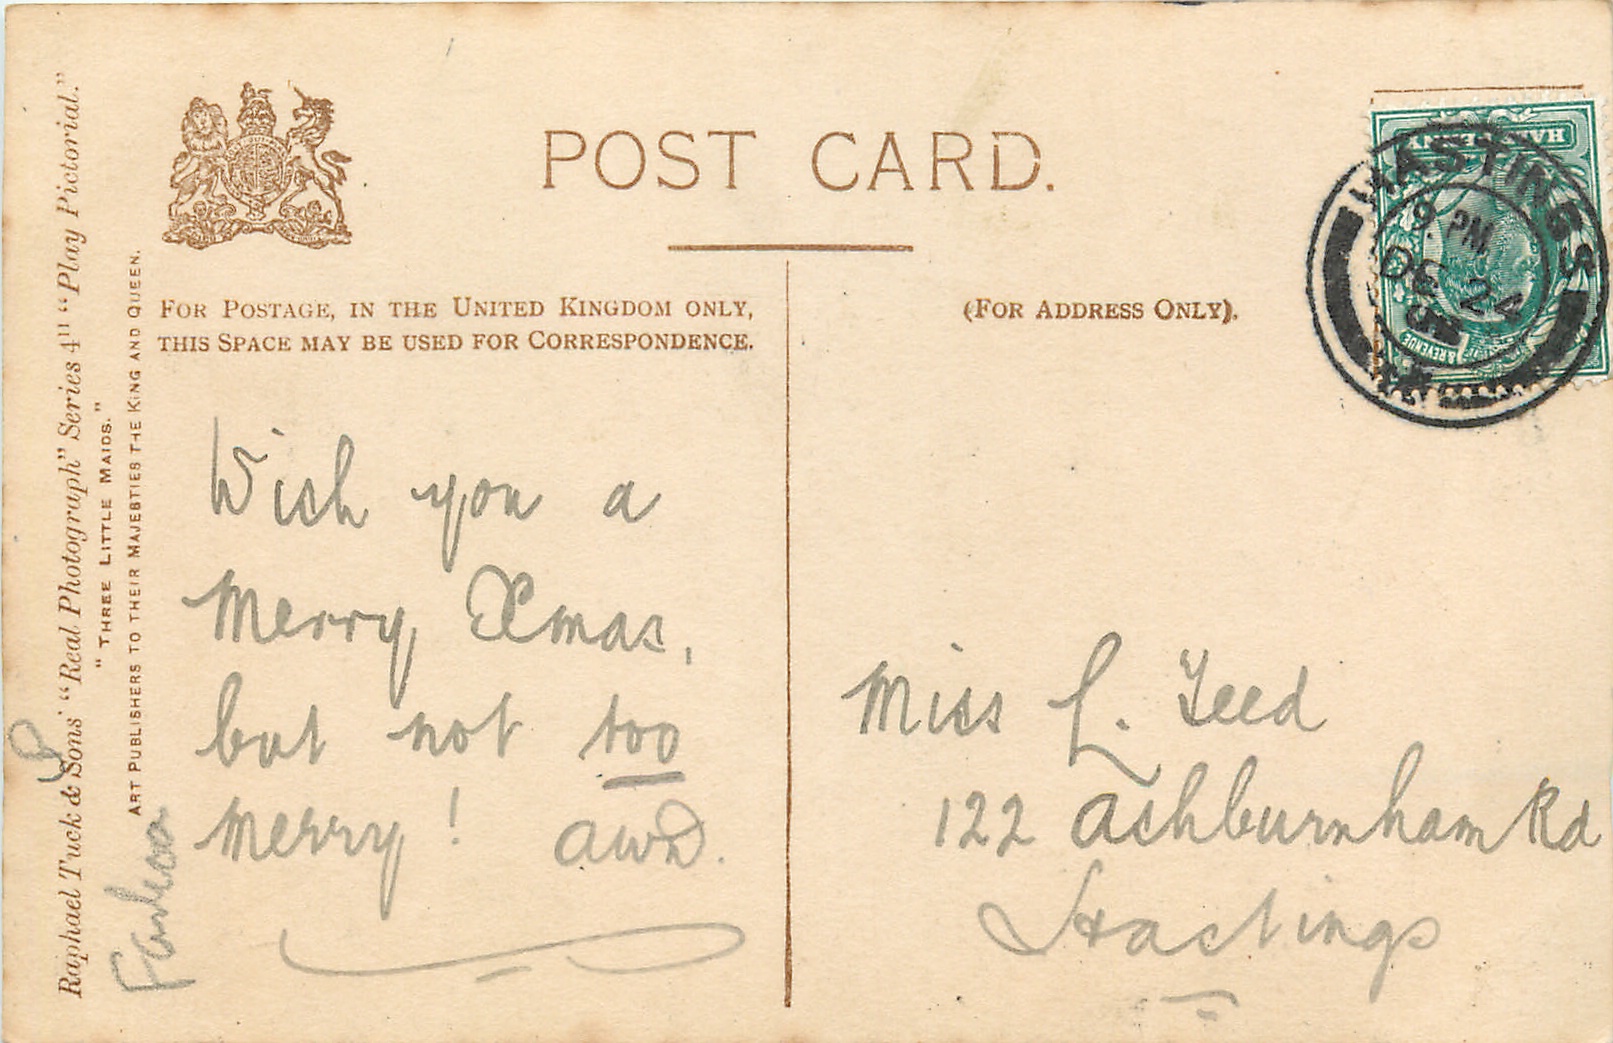 POST CARD.
FOR POSTAGE, IN THE UNITED KINGDOM ONLY,
THIS SPACE MAY BE USED FOR CORRESPONDENCE.
(FOR ADDRESS ONLY).
Raphael Tuck & Sons' "Real Photograph" Series 4" "Play Pictorial."
"THREE LITTLE MAIDS."
ART PUBLISHERS TO THEIR MAJESTIES THE KING AND QUEEN.
HASTINGS
9. PM
DE 24
& REVENUE
Wish you a
Merry Xmas,
but not too
merry! AWD.
Miss L. Teed
122 Ashburnham Rd
Hastings